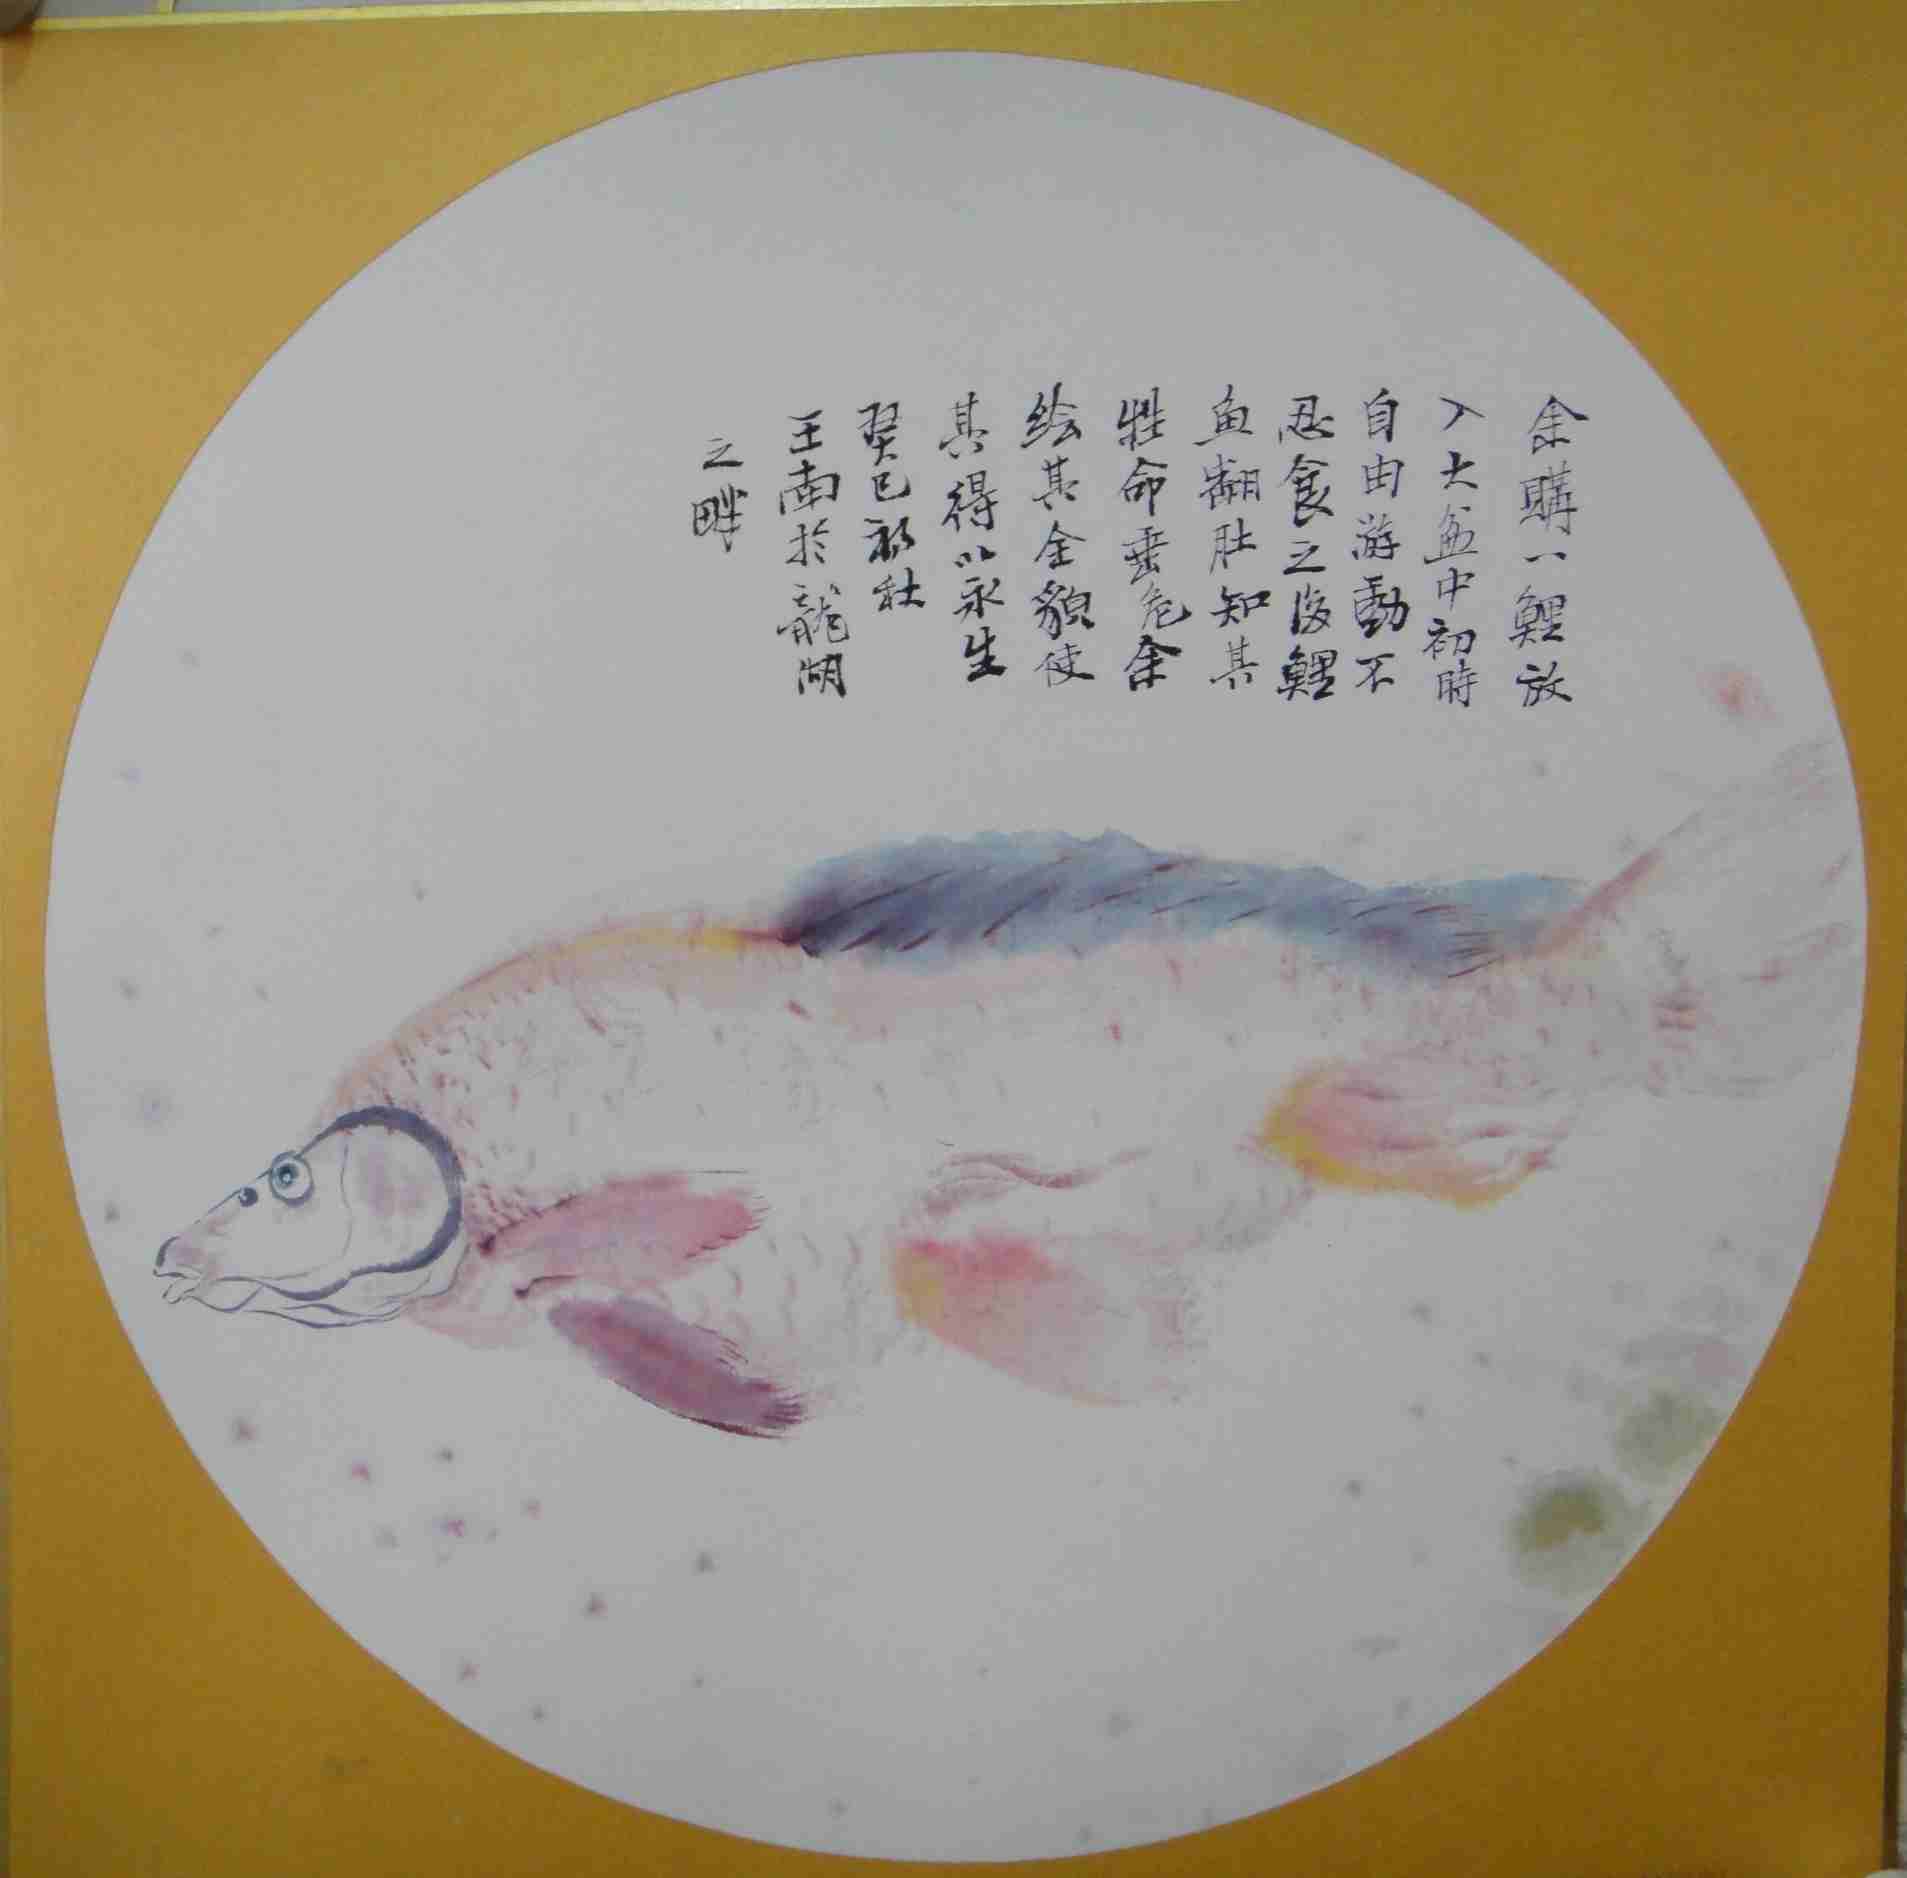 余購一鯉放
入大盆中初時
自由游動不
忍食之後鯉
鱼翻肚知其
牲命垂危余
绘其全貌使
其得以永生
癸巳初秋
王南於龍湖
之畔